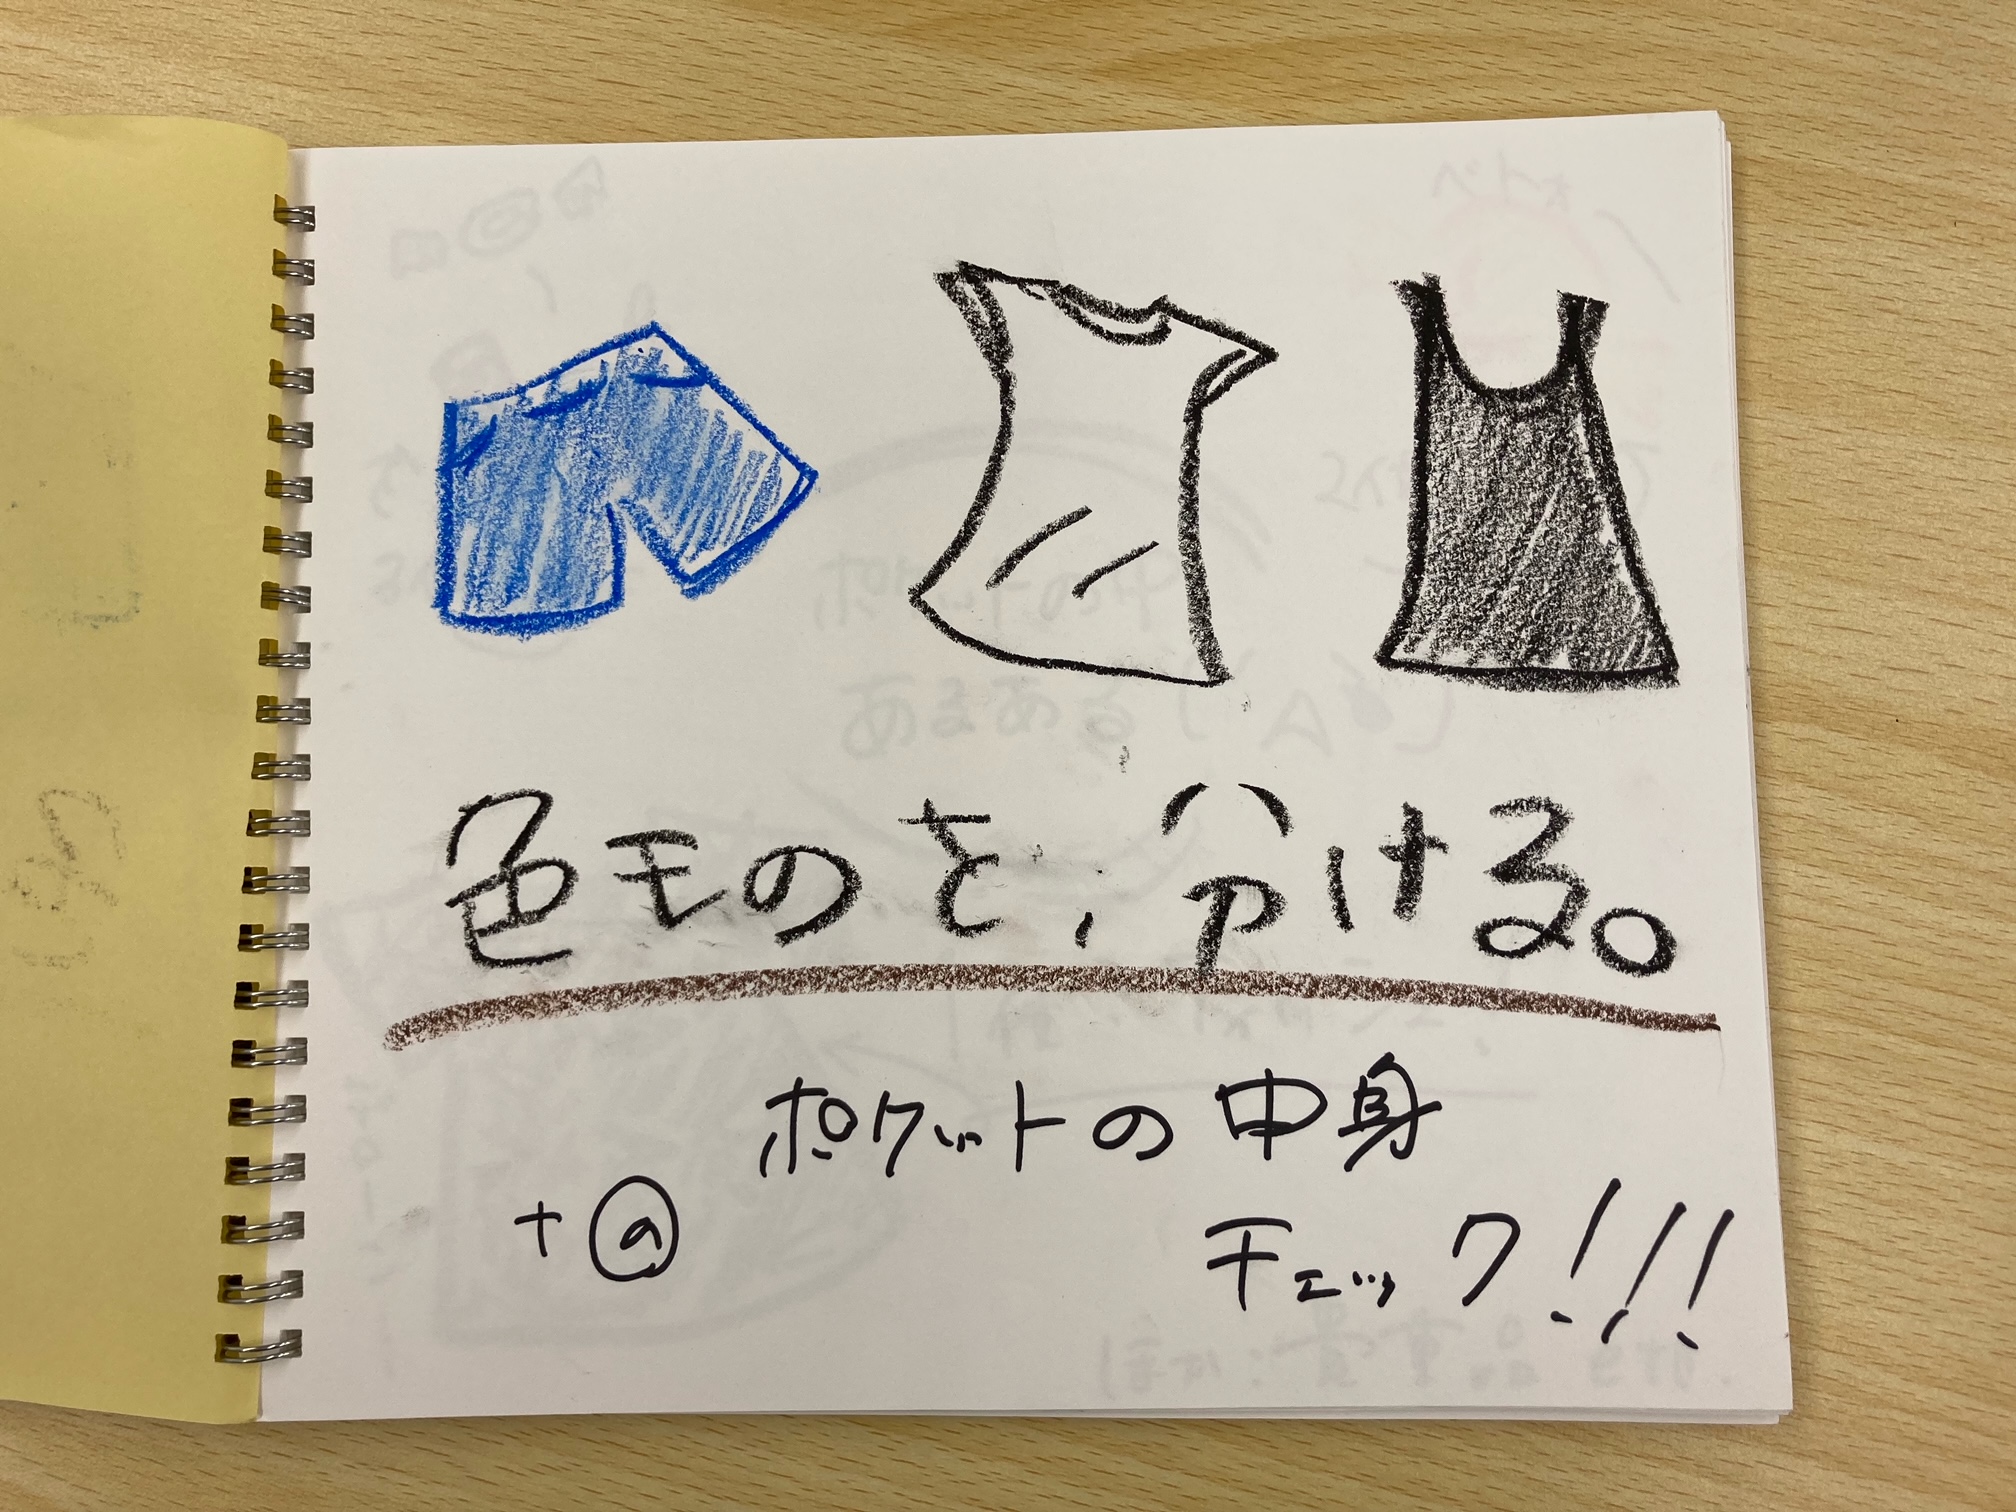 色モのを、分ける。
ポケットの中身
+@
チェック!!!